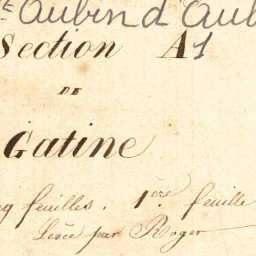 Aubin d'Aub
Section A1
DE
Gatine
feuilles. 1ère feuille
Levée par Roger